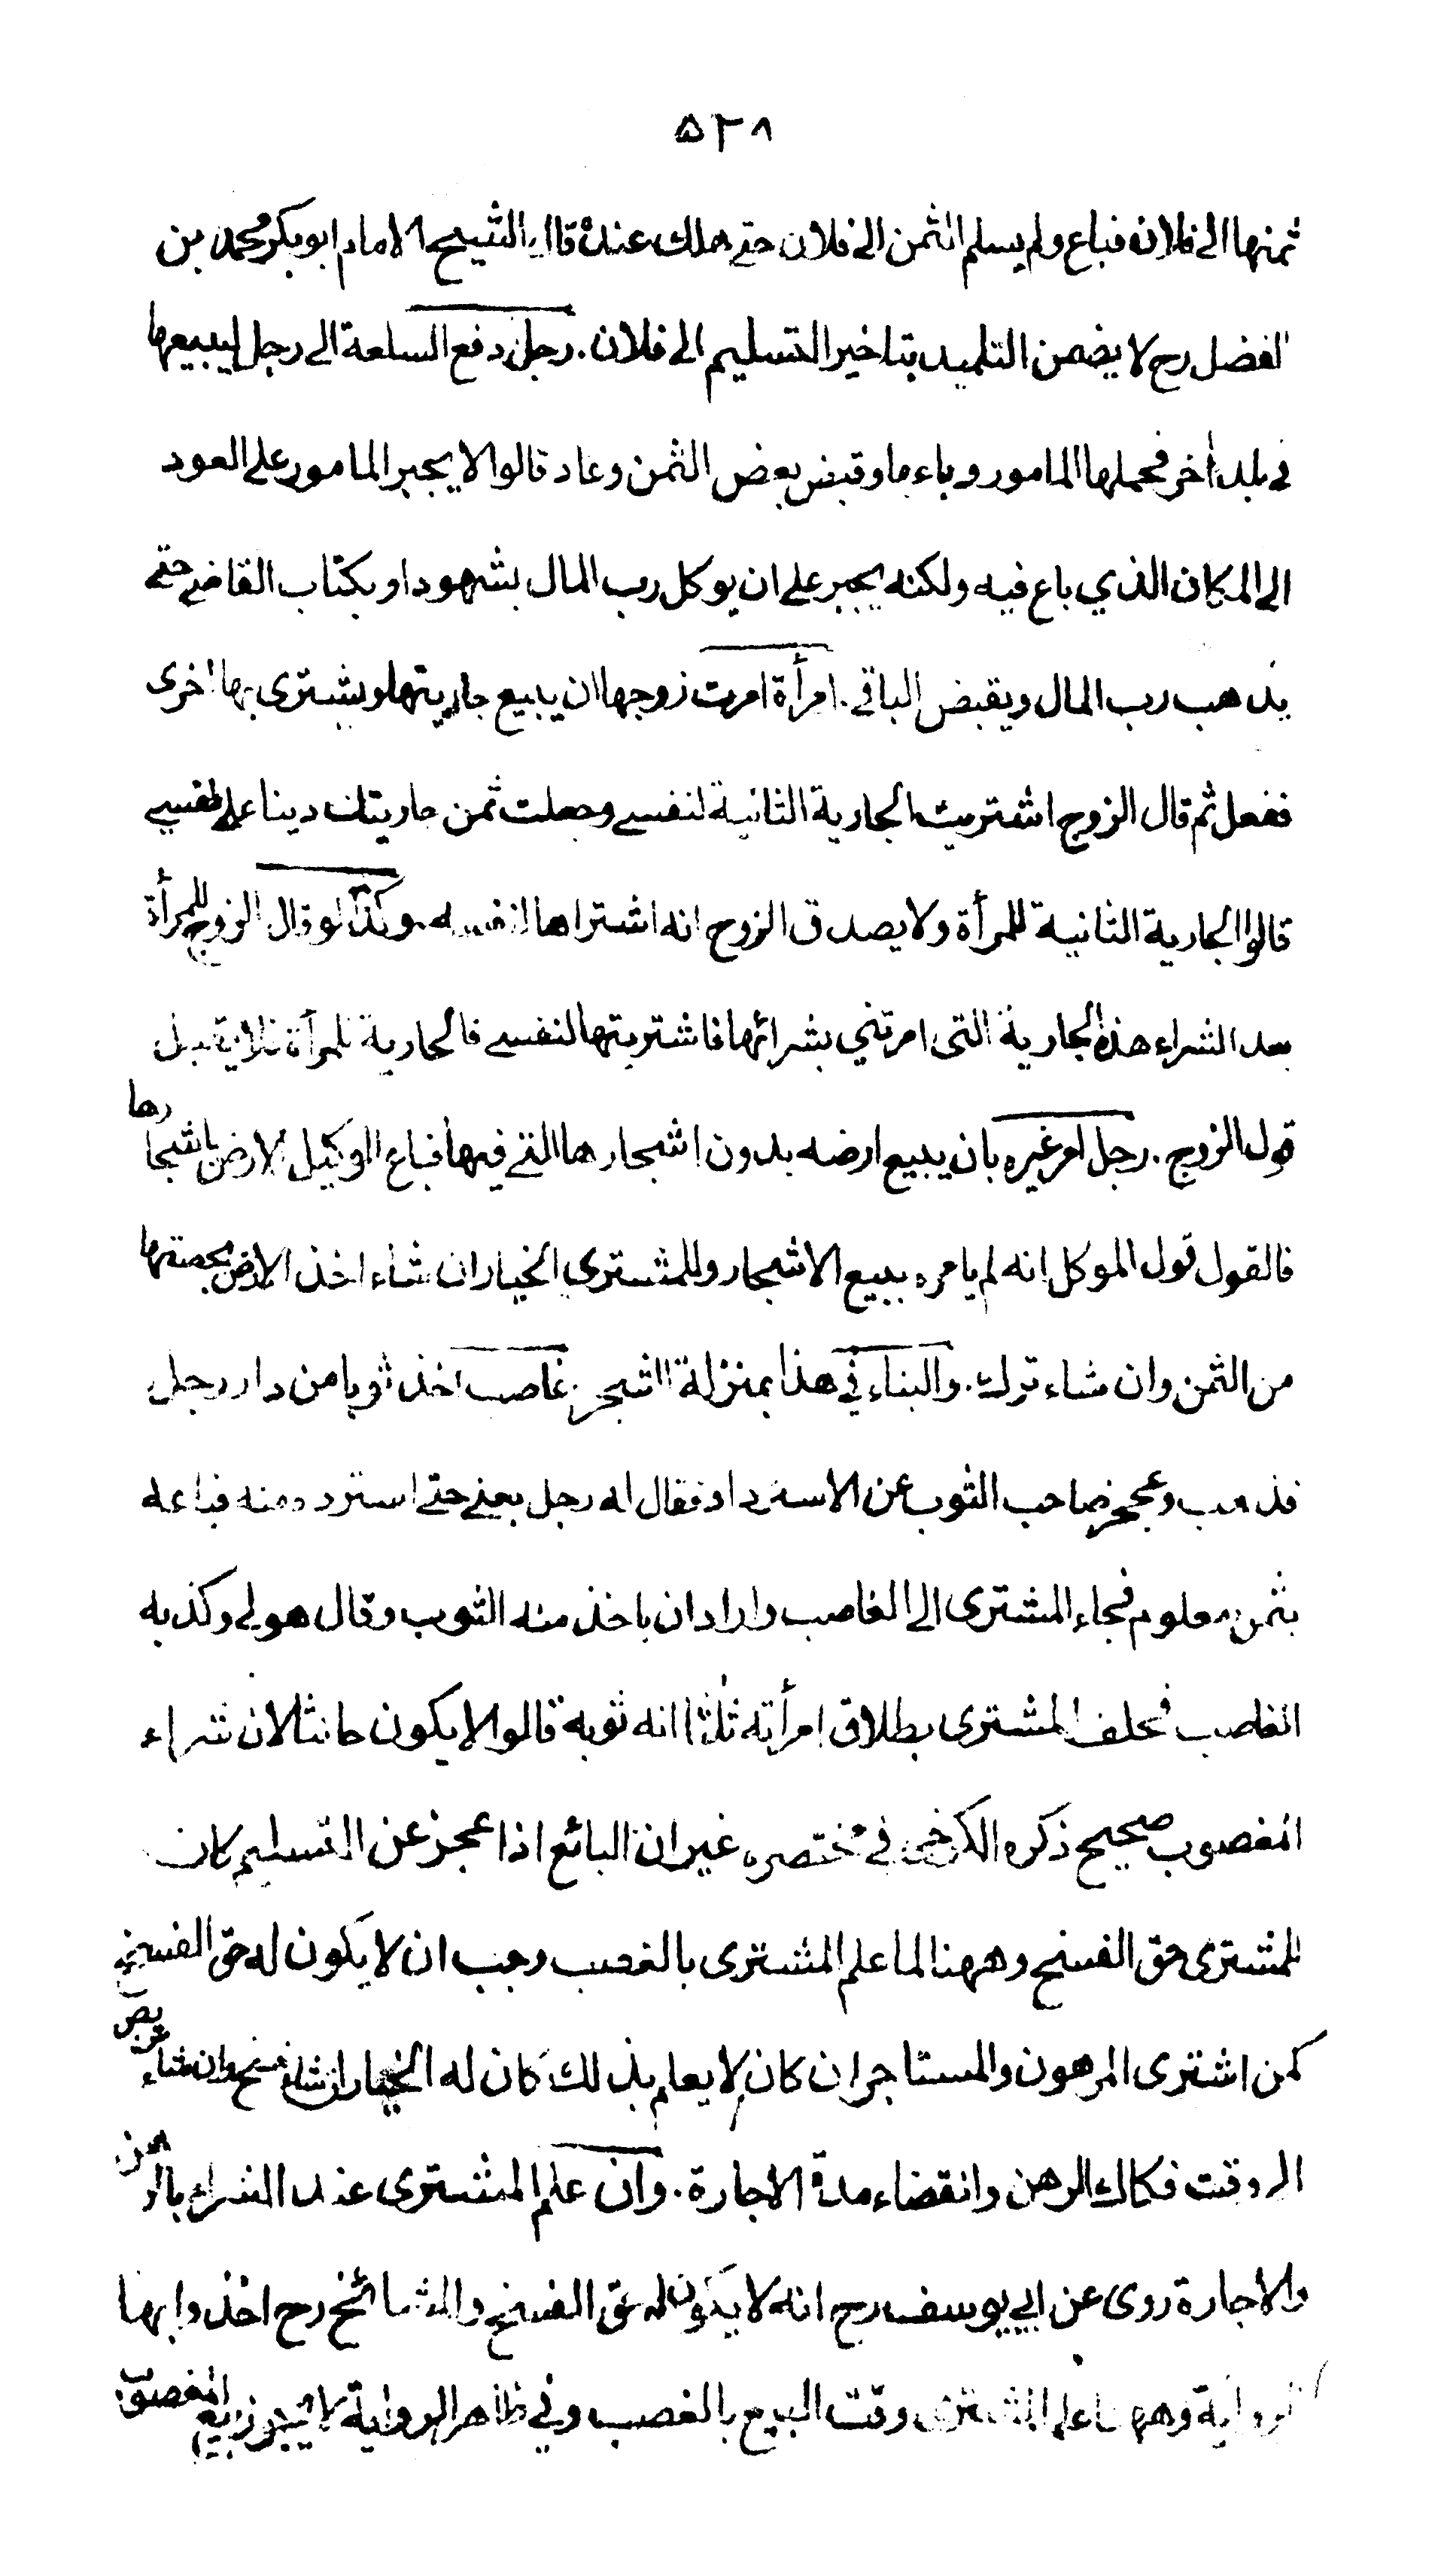 ٥٢٨
ثمنها الى فلان فباع ولم يسلم الثمن الى فلان حتى هلك عنده قال الشيخ الامام ابو بكر محمد بن
الفضل رح لا يضمن التلميذ بتاخير التسليم الى فلان . رجل دفع السلعة الى رجل ليبيعها
في بلد اخر فحملها المامور وباعها وقبض بعض الثمن وعاد قالوا لا يجبر المامور على العود
الى المكان الذي باع فيه ولكنه يجبر على ان يوكل رب المال بشهود او بكتاب القاضي حتى
يذهب رب المال ويقبض الباقي . امرأة امرت زوجها ان يبيع جاريتها ويشترى بها اخرى
ففعل ثم قال الزوج اشتريت الجارية الثانية لنفسي وجعلت ثمن جاريتك دينا على نفسي
قالوا الجارية الثانية للمرأة ولا يصدق الزوج انه اشتراها لنفسه . وكذا لو قال الزوج للمرأة
بعد الشراء هذه الجارية التى امرتني بشرائها فاشتريتها لنفسي فالجارية للمرأة فلا يقبل
قول الزوج . رجل امر غيره بان يبيع ارضه بدون اشجارها التي فيها فباع الوكيل الارض باشجارها
فالقول قول الموكل انه لم يامره ببيع الاشجار وللمشتري الخيار ان شاء اخذ الارض بحصتها
من الثمن وان شاء ترك . والبناء في هذا بمنزلة الشجر . غاصب اخذ ثوبا من دار رجل
فذهب وعجز صاحب الثوب عن الاسترداد فقال له رجل بعنى حتى استرد منه فباعه
بثمن معلوم فجاء المشترى الى الغاصب واراد ان ياخذ منه الثوب وقال هو لي وكذبه
الغاصب فحلف المشترى بطلاق امرأته ثلثا انه ثوبه قالوا لا يكون حانثا لان شراء
المغصوب صحيح ذكره الكرخي في مختصره غير ان البائع اذا عجز عن التسليم كان
للمشترى حق الفسخ وههنا لما علم المشترى بالغصب وجب ان لا يكون له حق الفسخ
كمن اشترى المرهون والمستاجر ان كان لا يعلم بذلك كان له الخيار ان شاء فسخ وان شاء تربص
الى وقت فكاك الرهن وانقضاء مدة الاجارة . وان علم المشترى عند الشراء بالرهن
والاجارة روى عن ابي يوسف رح انه لا يكون له حق الفسخ والمشائخ رح اخذوا بها
الرواية وههنا علم المشترى وقت البيع بالغصب وفي ظاهر الرواية لا يجوز بيع المغصوب